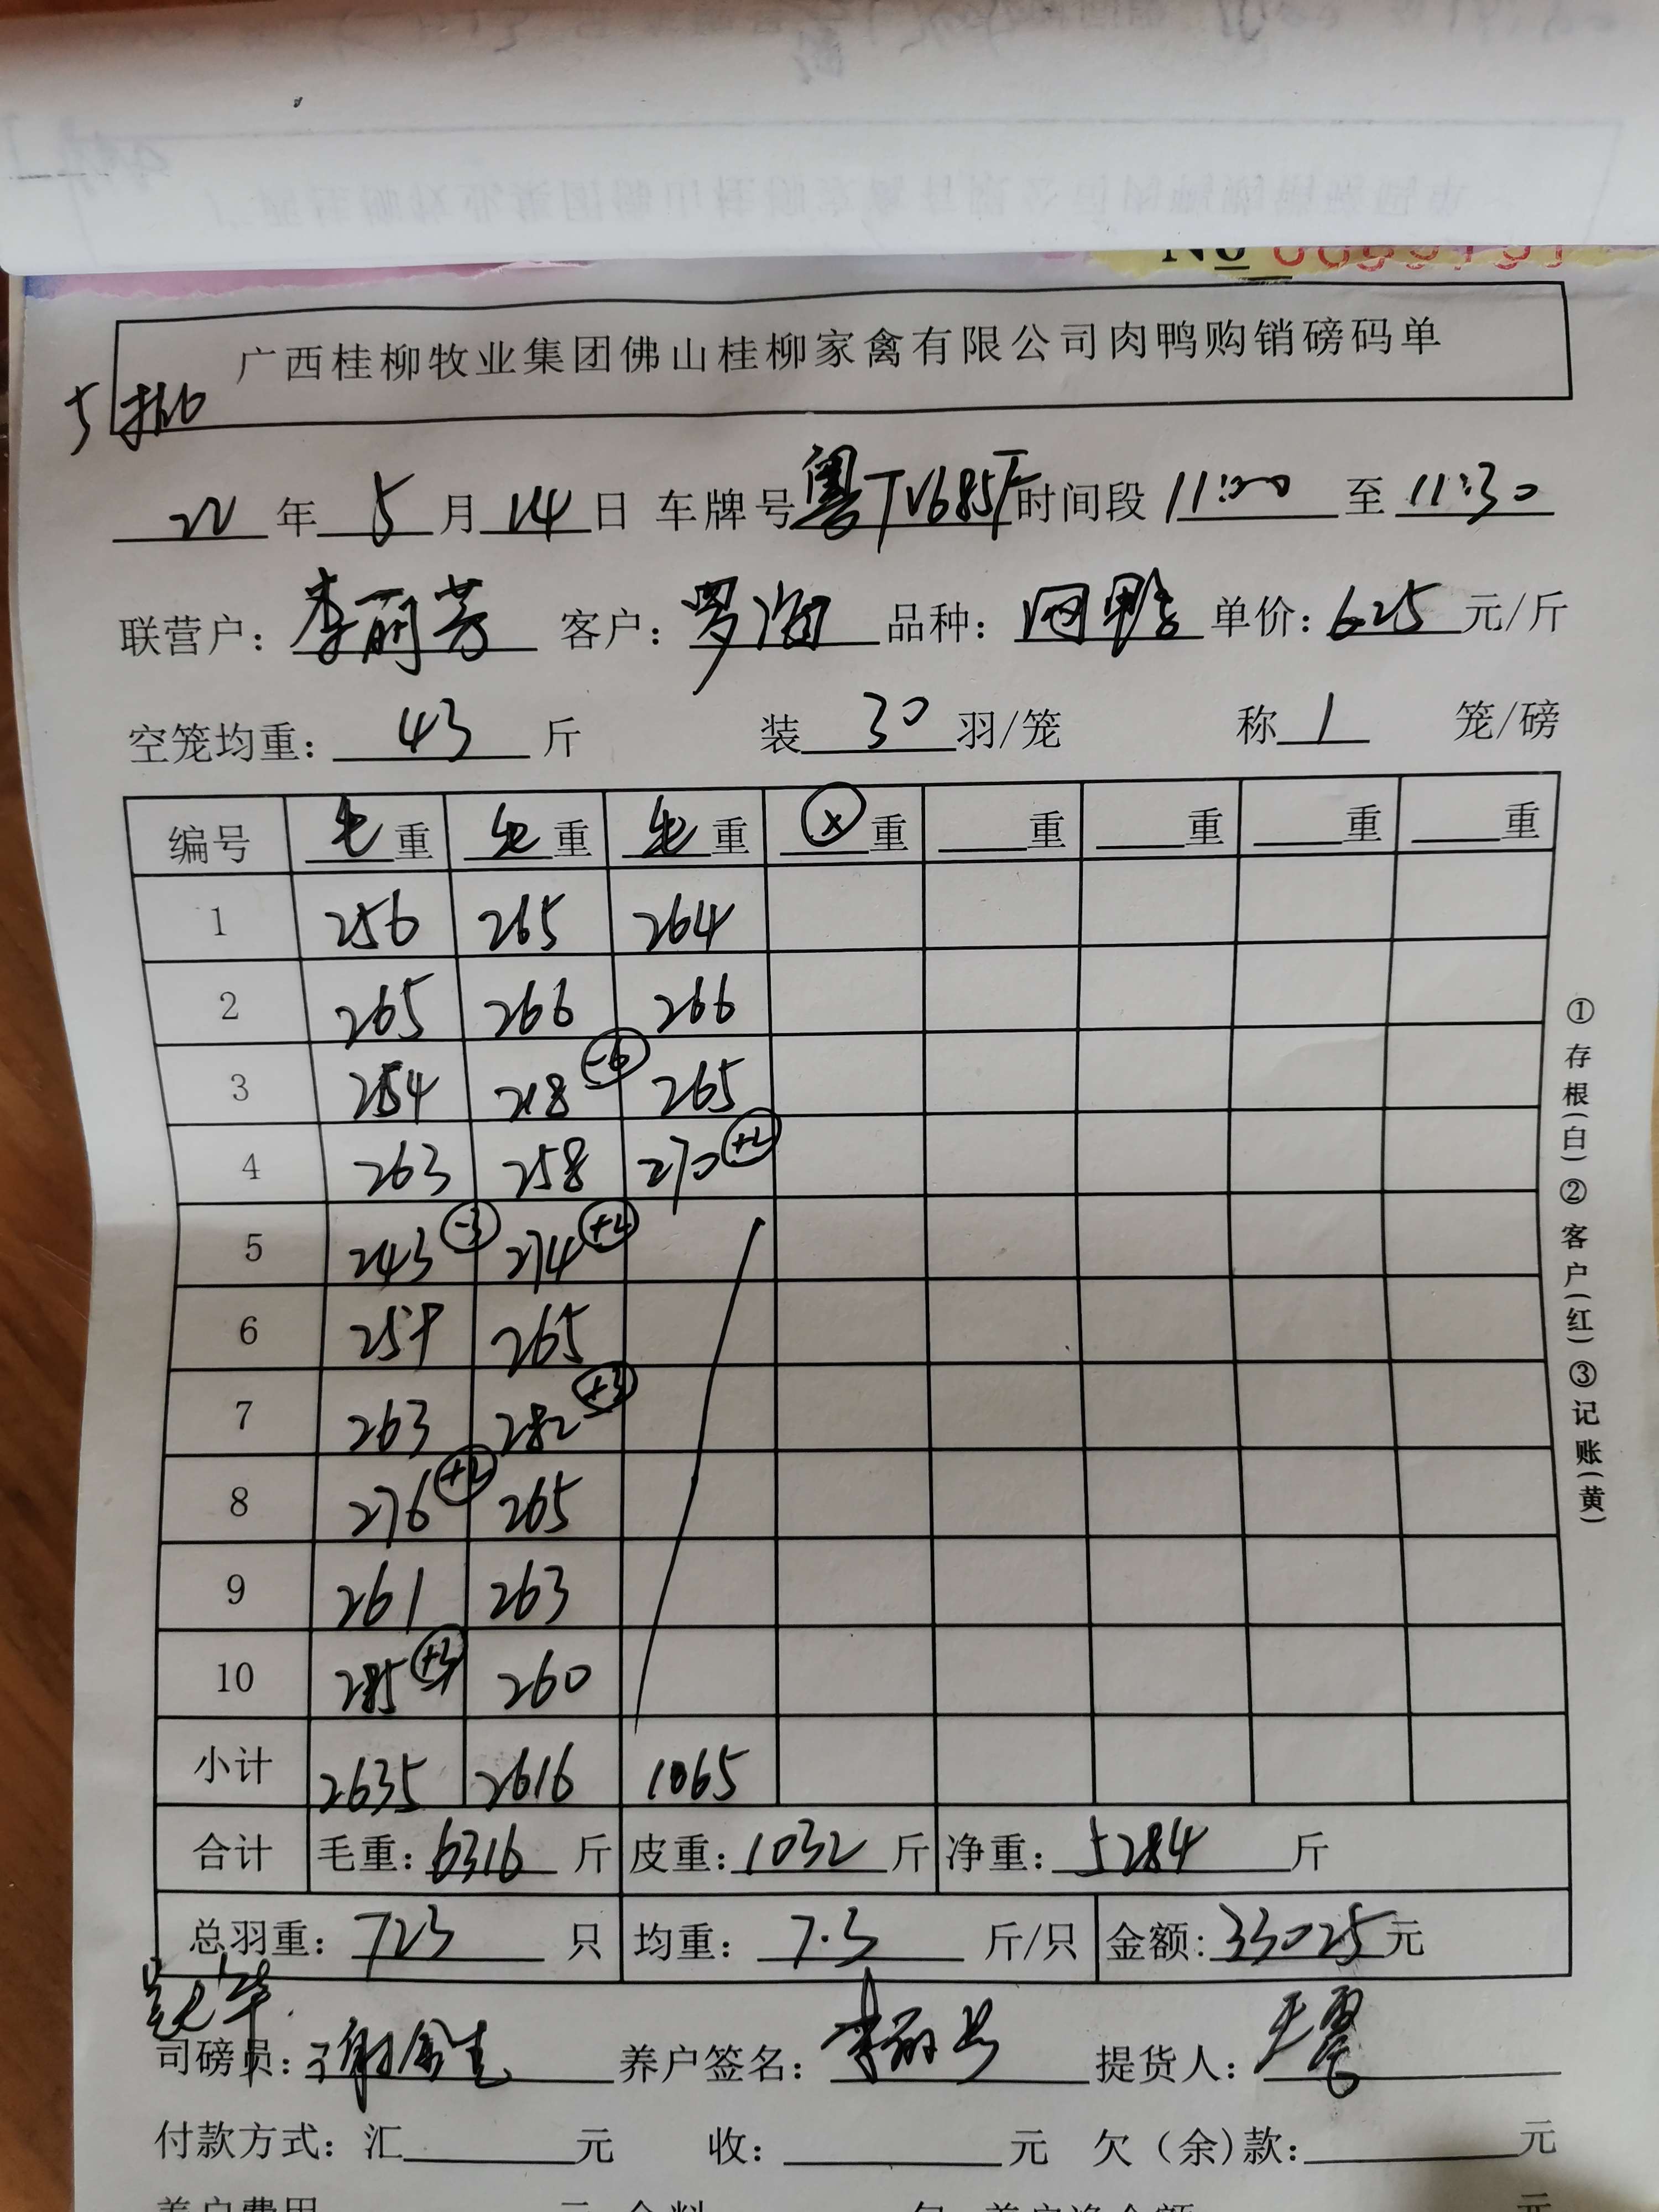 No 6699191
广西桂柳牧业集团佛山桂柳家禽有限公司肉鸭购销磅码单
5批
22 年 5 月 14 日 车牌号 粤TV685F 时间段 11:00 至 11:30
联营户: 李丽芳 客户: 罗海 品种: 网鸭 单价: 6.25 元/斤
空笼均重: 43 斤 装 30 羽/笼 称 1 笼/磅
编号 毛重 毛重 毛重 ⓧ重 重 重 重 重
1 256 265 264
2 265 266 266
3 264 218 -6 265
4 263 258 270 +2
5 243 -3 274 +2
6 259 265
7 263 282 +3
8 276 +2 265
9 261 263
10 285 +3 260
小计 2635 2616 1065
合计 毛重: 6316 斤 皮重: 1032 斤 净重: 5284 斤
总羽重: 723 只 均重: 7.3 斤/只 金额: 33025 元
司磅员: 谢金生 养户签名: 李丽芳 提货人:
付款方式: 汇 元 收: 元 欠（余)款: 元
①存根(白)②客户(红)③记账(黄)